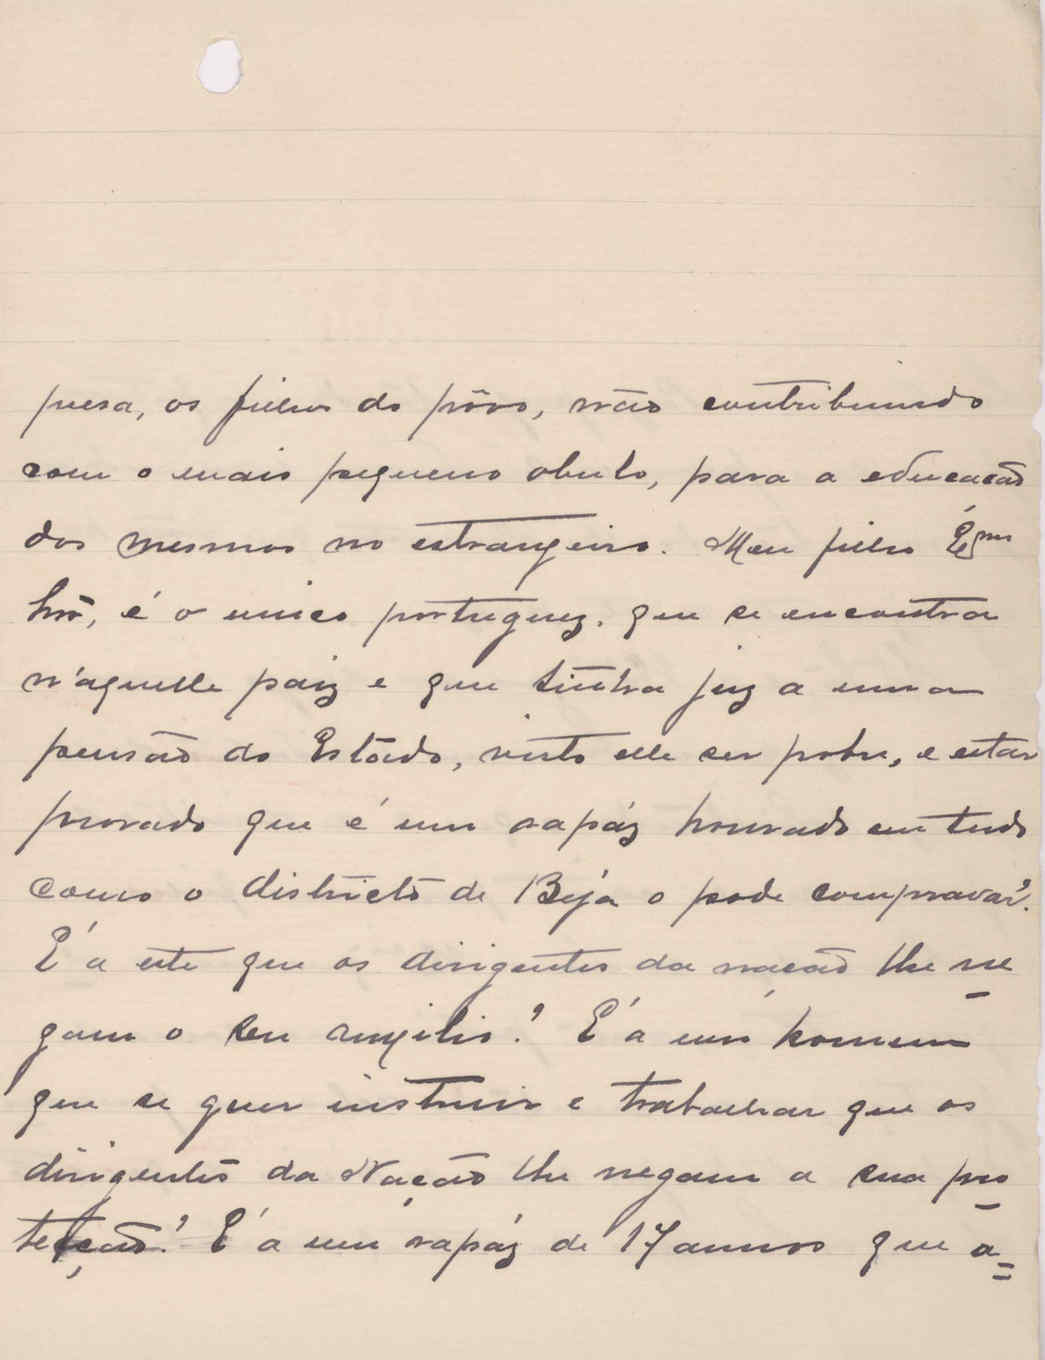 presa, os filhos do pôvo, não contribuindo
com o mais pequeno obulo, para a educacão
dos mesmos no estrangeiro. Meu filho
é o unico portuguez. que se encontra
n'aquelle paiz e que tinha juz a uma
pensão do Estado, visto elle ser pobre, e estar
provado que é um rapáz honrado em tudo
como o districto de Beja o pode comprovar.
É a este que os dirigentes da nação lhe ne
gam o seu auxilio? É a um homem
que se quer instruir e trabalhar que os
dirigentes da Nação lhe negam a sua pro
tecção? É a um rapáz de 17 annos que a=